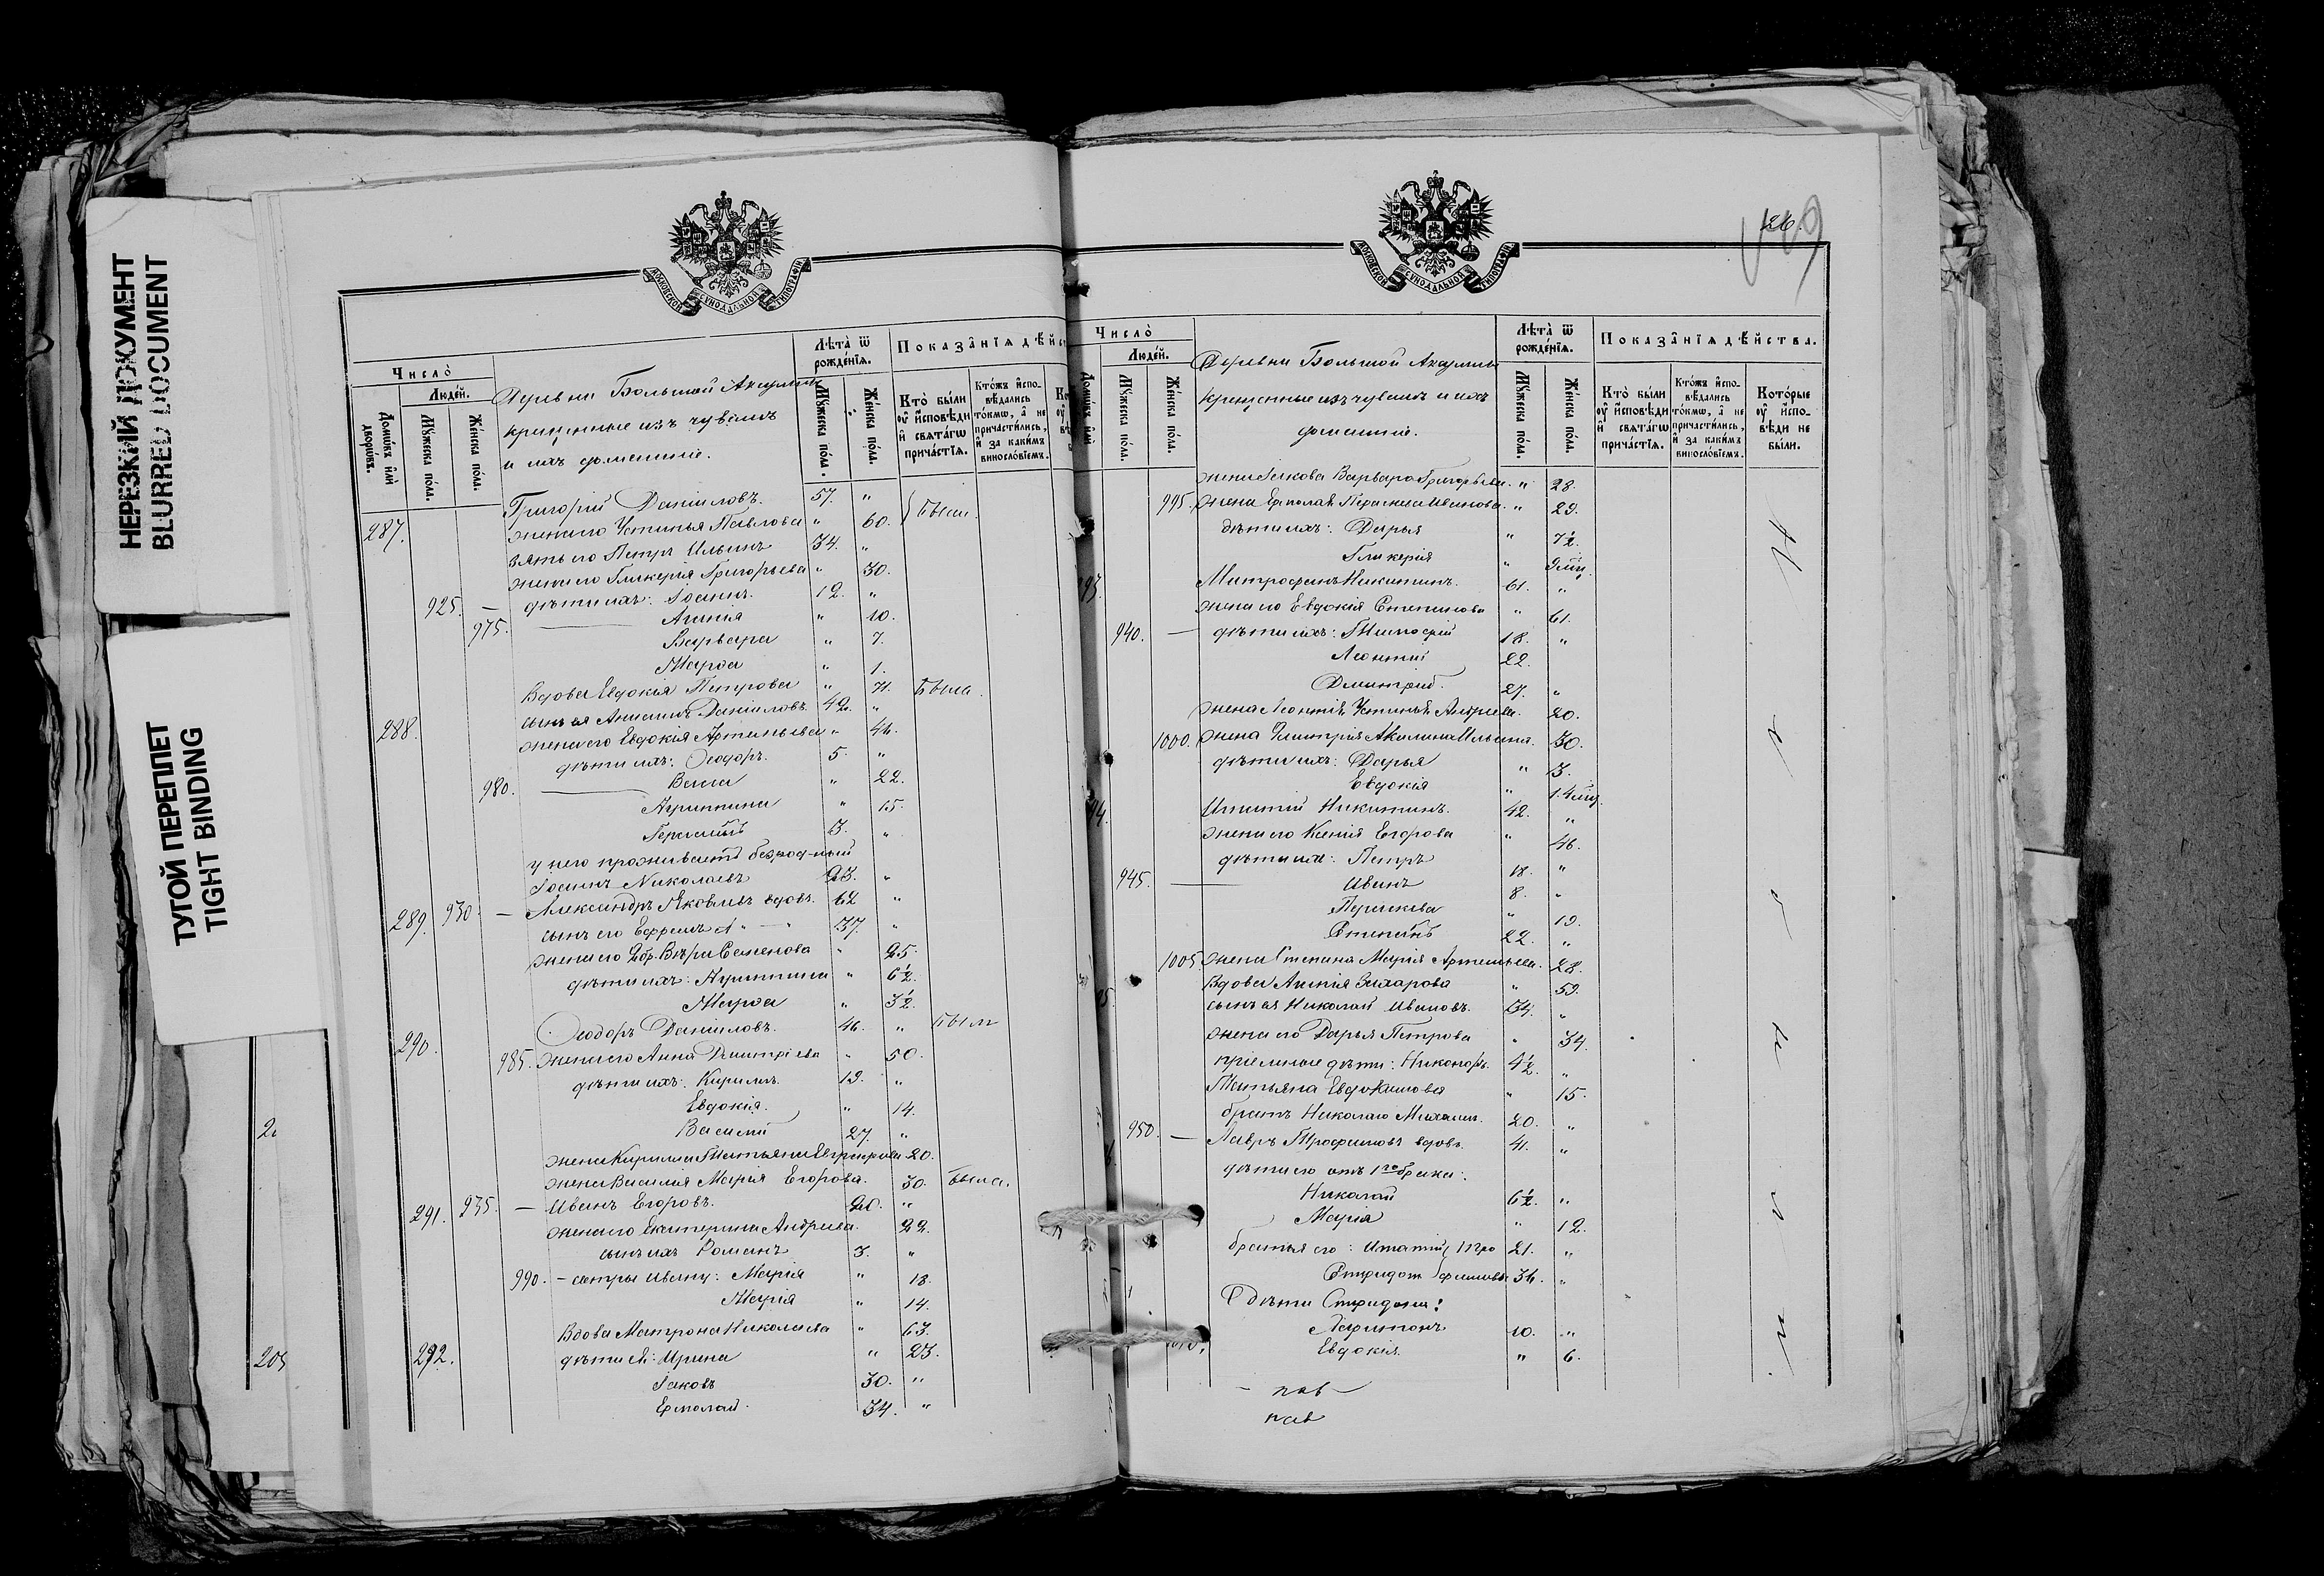 НЕРЕЗКИЙ ДОКУМЕНТ
BLURRED DOCUMENT
ТУГОЙ ПЕРЕПЛЕТ
TIGHT BINDING
МОСКОВСКОЙ СУНОДАЛЬНОЙ ТИПОГРАФІИ
Число̀
Люде́й.
Домѡ́въ и҆лѝ дворѡ́въ.
Мꙋ́жеска по́ла.
Же́нска по́ла.
Деревни Большой Акулины
крещенные изъ чувашъ
и ихъ фамиліи.
Лѣта̀ ѿ рожде́нїѧ.
Мꙋ́жеска по́ла.
Же́нска по́ла.
Показа̑нїѧ дѣ́йс
Кто̀ бы́ли ᲂу҆ и҆сповѣ́ди и҆ свѧта́гѡ прича́стїѧ.
Кто́жъ и҆спо-вѣ́дались то́кмѡ, а҆ не причасти́лись, и҆ за каки́мъ винослѡ́вїемъ.
287. Григорій Даніиловъ. 57. "
жена его Устинья Павлова " 60. Были.
зять его Петръ Ильинъ 34. "
жена его Гликерія Григорьева " 30.
925. — дѣти ихъ: Іоаннъ. 12. "
975. Агнія " 10.
Варвара " 7.
Марѳа " 1.
Вдова Евдокія Петрова " 71. Была.
288. сынъ ея Даніиловъ. 42. "
жена его Евдокія Артемьева " 46.
дѣти ихъ: Ѳеодоръ. 5. "
980. " 22.
Агриппина " 15.
Герасимъ 3. "
у него проживаетъ безрод-ный
Іоаннъ Николаевъ 23. "
289. 930. — Александръ Яковлевъ вдовъ. 62 "
сынъ его Ефремъ 37. "
жена его 2 бр. Вѣра Семенова " 25.
дѣти ихъ: Агриппина " 6½.
Марѳа " 3½.
290. Ѳеодоръ Даніиловъ. 46. " Былъ
985. жена его Анна Дмитріева " 50.
дѣти ихъ: Кириллъ. 19. "
Евдокія. " 14.
Василій 27. "
жена Кирилла Татьяна 20.
жена Василія Марія Егорова. 30. Была.
291. 935. — Иванъ Егоровъ. 20. "
жена его Екатерина Андреева. 22.
сынъ ихъ Романъ 3. "
990. — сестры Ивану: Марія " 18.
Марія " 14.
Вдова Матрона Николаева " 63.
292. дѣти ея: Ирина " 23.
Іаковъ 30. "
Ермолай. 34. "
126.
Число̀
Люде́й.
Мꙋ́жеска по́ла.
Же́нска по́ла.
Деревни Большой Акулины
крещенные изъ чувашъ и ихъ
фамиліи.
Лѣта̀ ѿ рожде́нїѧ.
Мꙋ́жеска по́ла.
Же́нска по́ла.
Показа̑нїѧ дѣ́йства.
Кто̀ бы́ли ᲂу҆ и҆сповѣ́ди и҆ свѧта́гѡ прича́стїѧ.
Кто́жъ и҆спо-вѣ́дались то́кмѡ, а҆ не причасти́лись, и҆ за каки́мъ винослѡ́вїемъ.
Кото́рые ᲂу҆ и҆спо-вѣ́ди не бы́ли.
жена Іакова Варвара Григорьева. " 28.
995. жена Ермолая Параскева Иванова. " 29.
дѣти ихъ: Дарья " 7½.
Гликерія "
Митрофанъ Никитинъ. 61. "
жена его Евдокія Степанова " 61.
940. — дѣти ихъ: Тимофей 18. "
Леонтій 22.
Дмитрій. 27. "
жена Леонтія Устинья Андреева. 20.
1000. жена Дмитрія Акилина Ильина. 30.
дѣти ихъ: Дарья " 3.
Евдокія "
Игнатій Никитинъ. 42. "
жена его Ксенія Егорова " 46.
дѣти ихъ: Петръ 18. "
945. — Иванъ 8. "
Параскева " 19.
Степанъ 22. "
1005. жена Степана Марія Артемьева. 28.
Вдова Агнія Захарова " 59.
сынъ ея Николай Ивановъ. 34. "
жена его Дарья Петрова " 34.
пріемные дѣти: Никаноръ. 4½. "
Татьяна Евдокимова " 15.
братъ Николаю Михаилъ. 20. "
950. — Лавръ Трофимовъ вдовъ. 41. "
дѣти его отъ 1го брака:
Николай 6½. "
Марія " 12.
братья его: Игнатій Тро 21. "
Спиридонъ фимовы 36. "
дѣти Спиридона:
Харитонъ 10. "
1010. Евдокія. " 6.